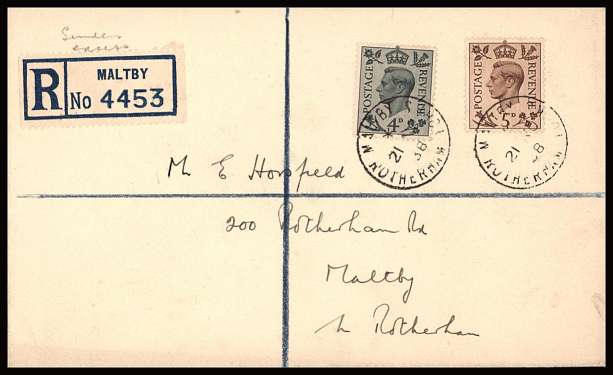 Senders
R
MALTBY
No 4453
POSTAGE REVENUE
4D
POSTAGE REVENUE
5D
MALTBY
21
38
ROTHERHAM
MALTBY
21
38
ROTHERHAM
Mr E Horsfield
200 Rotherham Rd
Maltby
Nr Rotherham